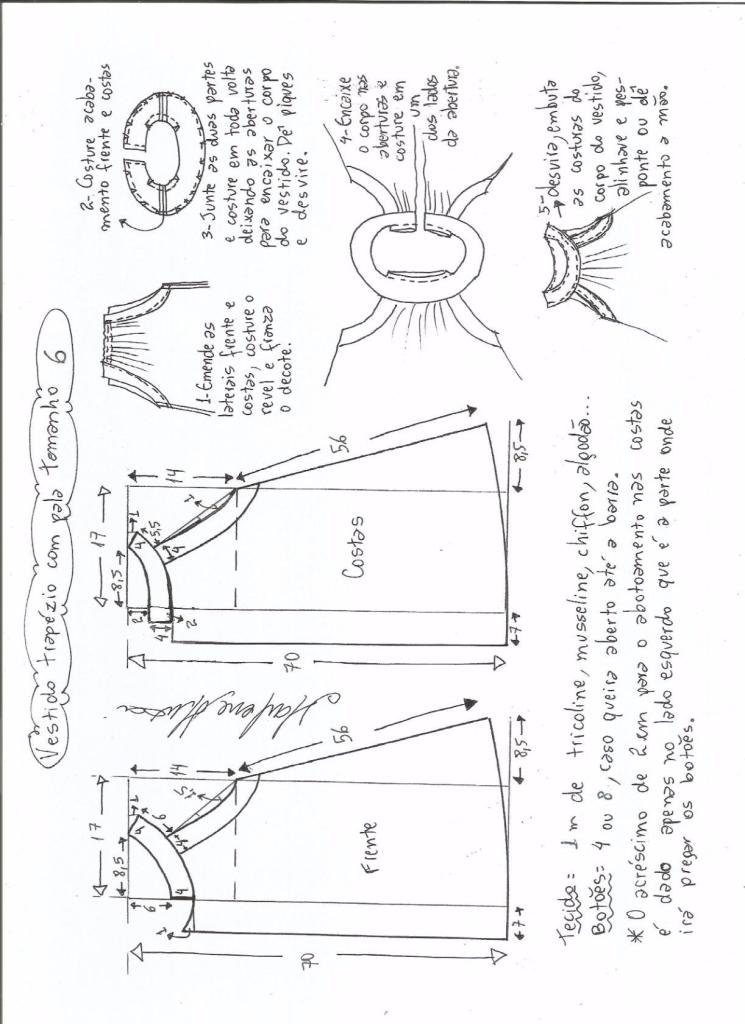 Vestido trapézio com pala tamanho 6
17
8,5
1
4
6
6
4
4
1,5
14
56
70
1
7
8,5
Frente
Marlene Mukai
17
8,5
1
4
5,5
2
4
2
4
1
14
56
70
7
8,5
Costas
1-Emende as
laterais frente e
costas, costure o
revel e franza
o decote.
2- Costure acaba-
mento frente e costas
3-Junte as duas partes
e costure em toda volta
deixando as aberturas
para encaixar o corpo
do vestido. Dê piques
e desvire.
4-Encaixe
o corpo nas
aberturas e
costure em
um
dos lados
da abertura.
5-desvira, embuta
as costuras do
corpo do vestido,
alinhave e pes-
ponte ou dê
acabamento a mão.
Tecido= 1 m de tricoline, musseline, chiffon, algodão...
Botões= 4 ou 8, caso queira aberto até a barra.
* O acréscimo de 2 cm para o abotoamento nas costas
é dado apenas no lado esquerdo que é a parte onde
irá pregar os botões.